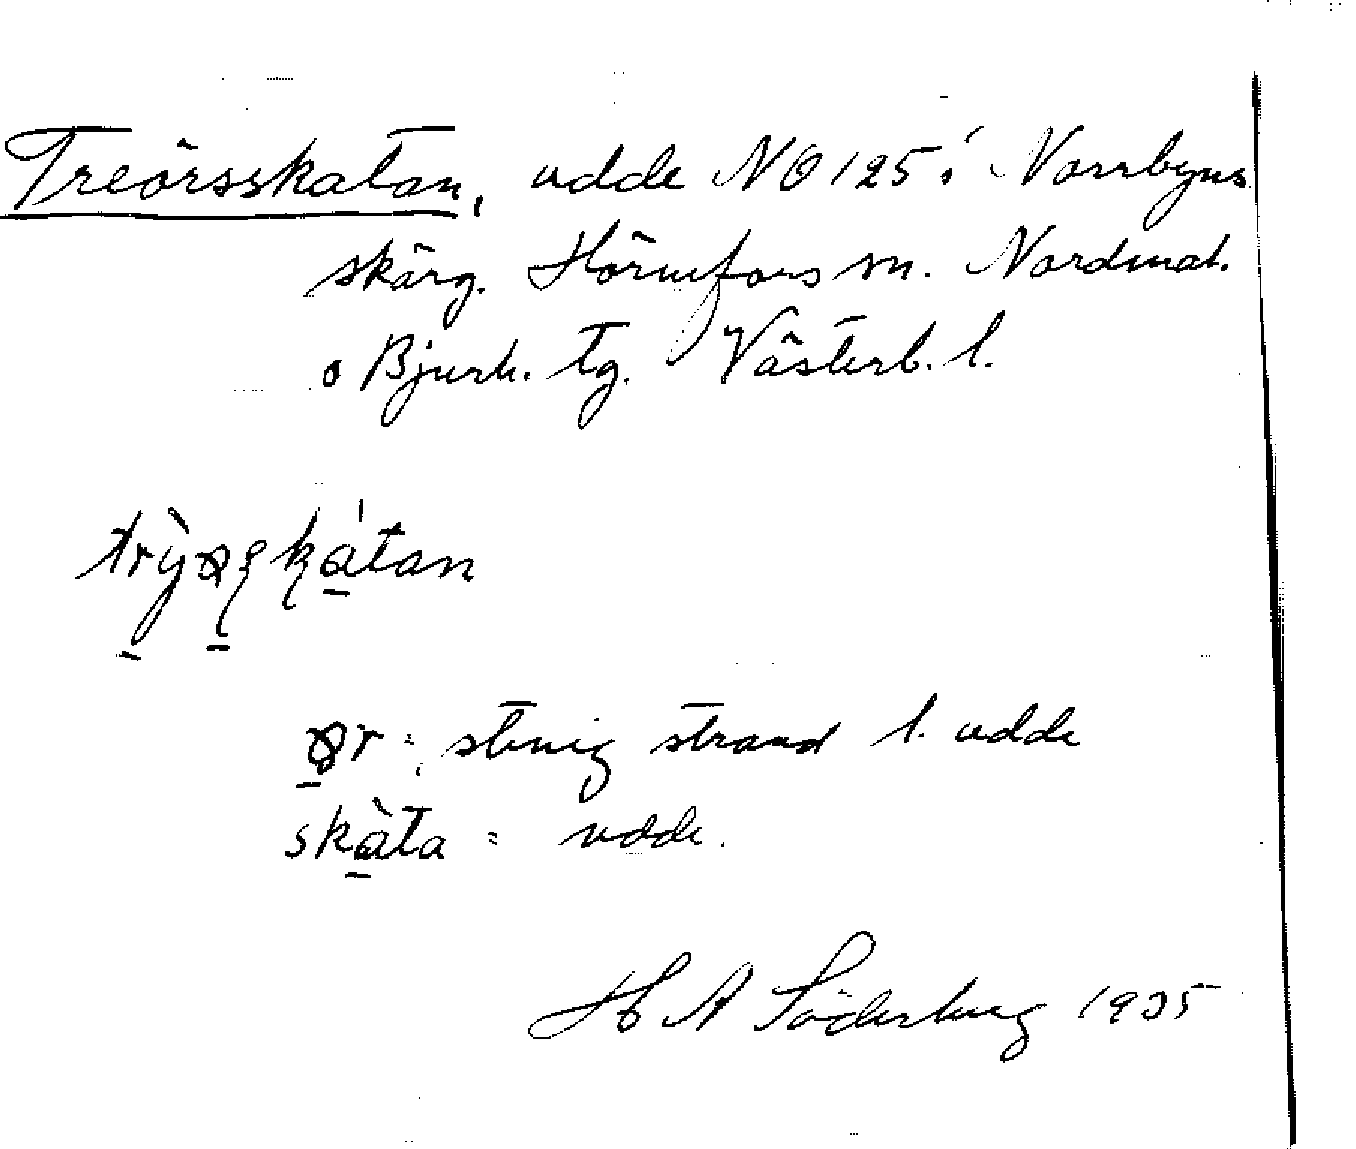 Treörsskatan, udde NO 125 i Norrbyns
skärg. Hörnefors sn. Nordmal.
o Bjurh. tg. Västerb. l.
ör = stenig strand l. udde
skàta = udde.
H A Söderberg 1935